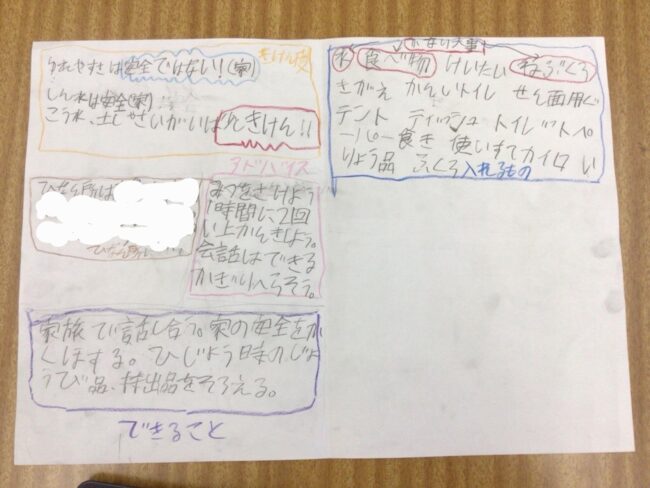 ゆれやすさは安全ではない!(家)
しん水は安全(家)
こう水、土しゃさいがいはきけん!!
ひなん所は
アドバイス
みつをさけよう
1時間に2回
い上かんきしよう。
会話はできる
かぎりへらそう。
家族で話し合う。家の安全をか
くほする。ひじょう時のじょ
うび品、持出品をそろえる。
できること
かない大事!
水 食べ物 けいたい ねぶくろ
きがえ かんいトイレ せん面用ぐ
テント ティッシュ トイレットペ
ーパー 食き 使いすてカイロ い
りょう品 ふくろ 入れるもの